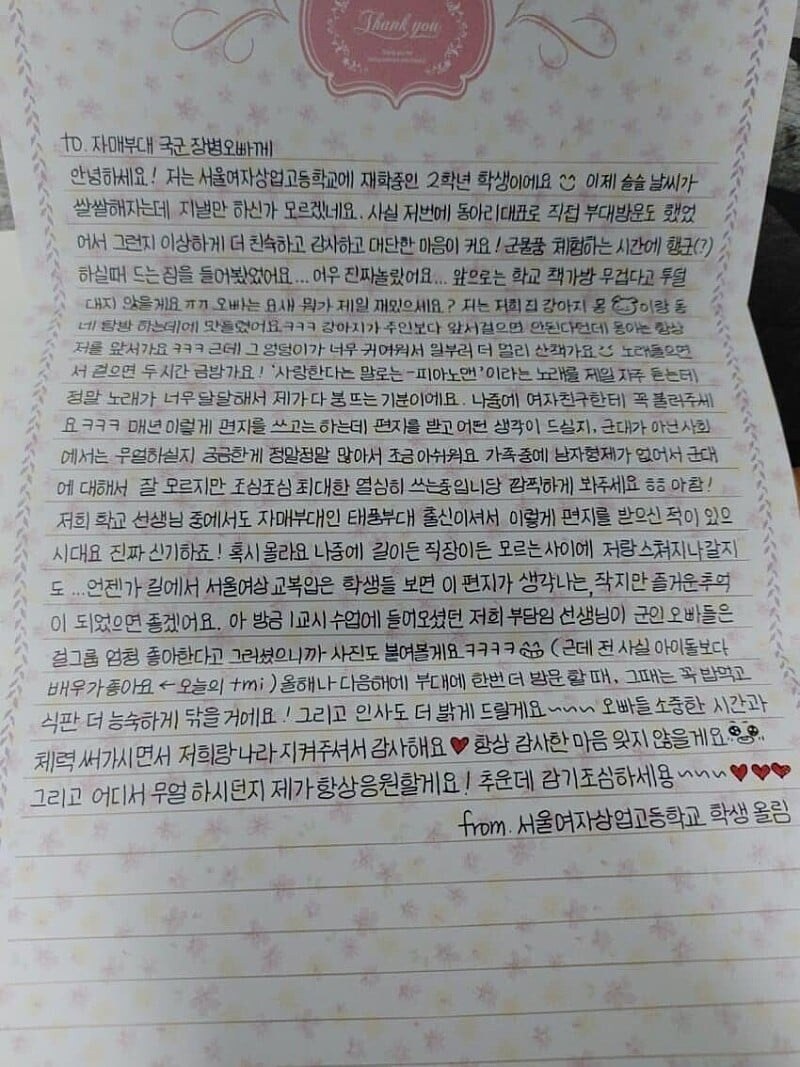 Thank you
to. 자매부대 국군 장병오빠께
안녕하세요! 저는 서울여자상업고등학교에 재학중인 2학년 학생이에요 이제 슬슬 날씨가
쌀쌀해지는데 지낼만 하신가 모르겠네요. 사실 저번에 동아리대표로 직접 부대방문도 했었
어서 그런지 이상하게 더 친숙하고 감사하고 대단한 마음이 커요! 군물품 체험하는 시간에 행군(?)
하실때 드는 짐을 들어봤었어요... 어우 진짜놀랐어요... 앞으로는 학교 책가방 무겁다고 투덜
대지 않을게요 ㄲㄲ 오빠는 요새 뭐가 제일 재밌으세요? 저는 저희 집 강아지 몽이랑 동
네 탐방 하는데에 맛들렸어요ㅋㅋㅋ 강아지가 주인보다 앞서걸으면 안된다던데 몽이는 항상
저를 앞서가요 ㅋㅋㅋ 근데 그 엉덩이가 너무 귀여워서 일부러 더 멀리 산책가요 노래들으면
서 걸으면 두시간 금방가요! '사랑한다는 말로는-피아노맨'이라는 노래를 제일 자주 듣는데
정말 노래가 너무 달달해서 제가 다 붕 뜨는 기분이에요. 나중에 여자친구한테 꼭 불러주세
요ㅋㅋㅋ 매년 이렇게 편지를 쓰고는 하는데 편지를 받고 어떤 생각이 드실지, 군대가 아닌 사회
에서는 무얼하실지 궁금한게 정말정말 많아서 조금 아쉬워요 가족중에 남자형제가 없어서 군대
에 대해서 잘 모르지만 조심조심 최대한 열심히 쓰는중입니당 깜찍하게 봐주세요 ㅎㅎ 아참!
저희 학교 선생님 중에서도 자매부대인 태풍부대 출신이셔서 이렇게 편지를 받으신 적이 있으
시대요 진짜 신기하죠! 혹시 몰라요 나중에 길이든 직장이든 모르는사이에 저랑 스쳐지나갈지
도 ... 언젠가 길에서 서울여상 교복입은 학생들 보면 이 편지가 생각나는, 작지만 즐거운추억
이 되었으면 좋겠어요. 아 방금 1교시 수업에 들어오셨던 저희 부담임 선생님이 군인 오빠들은
걸그룹 엄청 좋아한다고 그러셨으니까 사진도 붙여볼게요 ㅋㅋㅋㅋ (근데 전 사실 아이돌보다
배우가좋아요 ← 오늘의 tmi) 올해나 다음해에 부대에 한번 더 방문 할 때, 그때는 꼭 밥먹고
식판 더 능숙하게 닦을 거에요! 그리고 인사도 더 밝게 드릴게요~~~ 오빠들 소중한 시간과
체력 써가시면서 저희랑 나라 지켜주셔서 감사해요♥ 항상 감사한 마음 잊지 않을게요
그리고 어디서 무얼 하시던지 제가 항상응원할게요! 추운데 감기조심하세용~~~♥♥♥
from. 서울여자상업고등학교 학생 올림